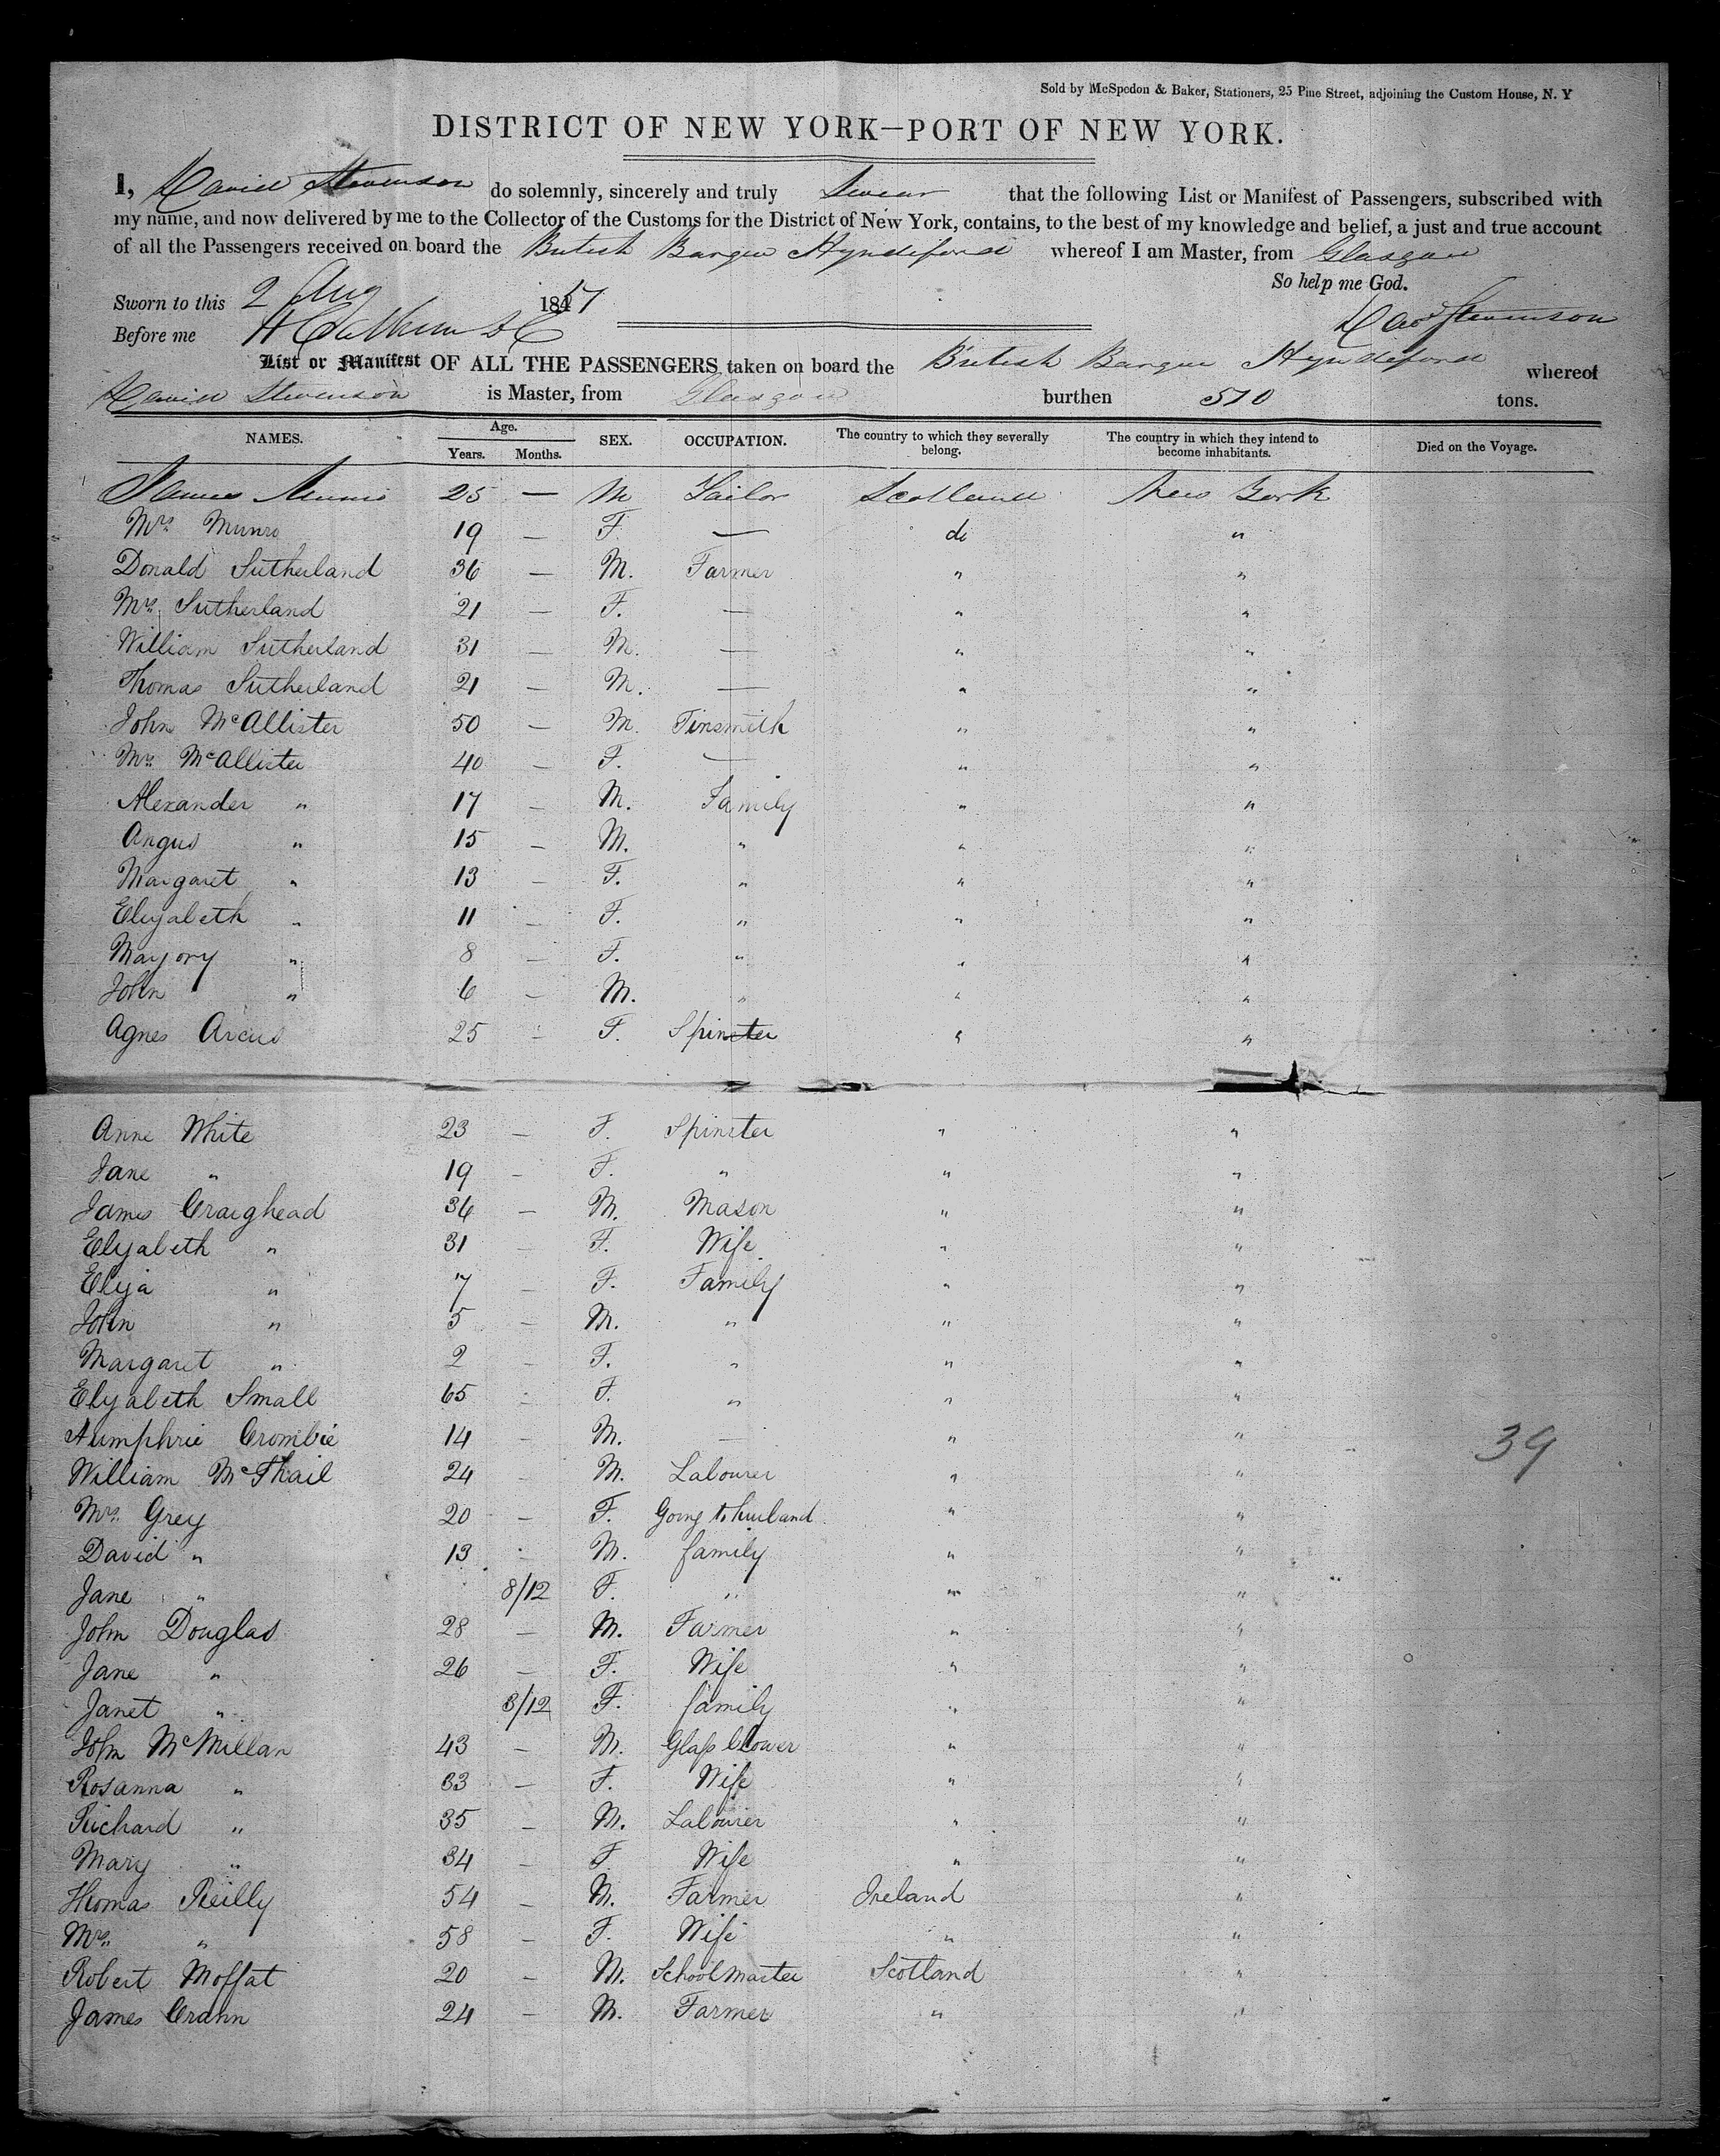 Sold by McSpedon & Baker, Stationers, 25 Pine Street, adjoining the Custom House, N. Y
DISTRICT OF NEW YORK—PORT OF NEW YORK.
I, David Stevenson do solemnly, sincerely and truly Swear that the following List or Manifest of Passengers, subscribed with
my name, and now delivered by me to the Collector of the Customs for the District of New York, contains, to the best of my knowledge and belief, a just and true account
of all the Passengers received on board the British Barque Hyndeford whereof I am Master, from Glasgow
So help me God.
Sworn to this 2 Aug 1851
Davd Stevenson
Before me
List or Manifest OF ALL THE PASSENGERS taken on board the British Barque Hyndeford whereof
David Stevenson is Master, from Glasgow burthen 510 tons.
NAMES. Age. Years. Months. SEX. OCCUPATION. The country to which they severally belong. The country in which they intend to become inhabitants. Died on the Voyage.
James Munro 25 — M Tailor Scotland New York
Mrs Munro 19 — F. — do "
Donald Sutherland 36 — M. Farmer " "
Mrs Sutherland 21 — F. — " "
William Sutherland 31 — M. — " "
Thomas Sutherland 21 — M. — " "
John McAllister 50 — M. Tinsmith " "
Mrs McAllister 40 — F. — " "
Alexander " 17 — M. Family " "
Angus " 15 — M. " " "
Margaret " 13 — F. " " "
Elizabeth " 11 — F. " " "
Marjory " 8 — F. " " "
John " 6 — M. " " "
Agnes Arcus 25 — F. Spinster " "
Anne White 23 — F. Spinster " "
Jane " 19 — F. " " "
James Craighead 36 — M. Mason " "
Elizabeth " 31 — F. Wife " "
Eliza " 7 — F. Family " "
John " 5 — M. " " "
Margaret " 2 — F. " " "
Elizabeth Small 65 — F. " " "
Humphrie Crombie 14 — M. — " "
39
William McPhail 24 — M. Labourer " "
Mrs Grey 20 — F. Going to husband " "
David " 13 — M. family " "
Jane " 8/12 F. " " "
John Douglas 28 — M. Farmer " "
Jane " 26 — F. Wife " "
Janet " 8/12 F. family " "
John McMillan 43 — M. Glass blower " "
Rosanna " 33 — F. Wife " "
Richard " 35 — M. Labourer " "
Mary " 34 — F Wife " "
Thomas Reilly 54 — M. Farmer Ireland "
Mrs " 58 — F. Wife " "
Robert Moffat 20 — M. Schoolmaster Scotland "
James Crann 24 — M. Farmer " "